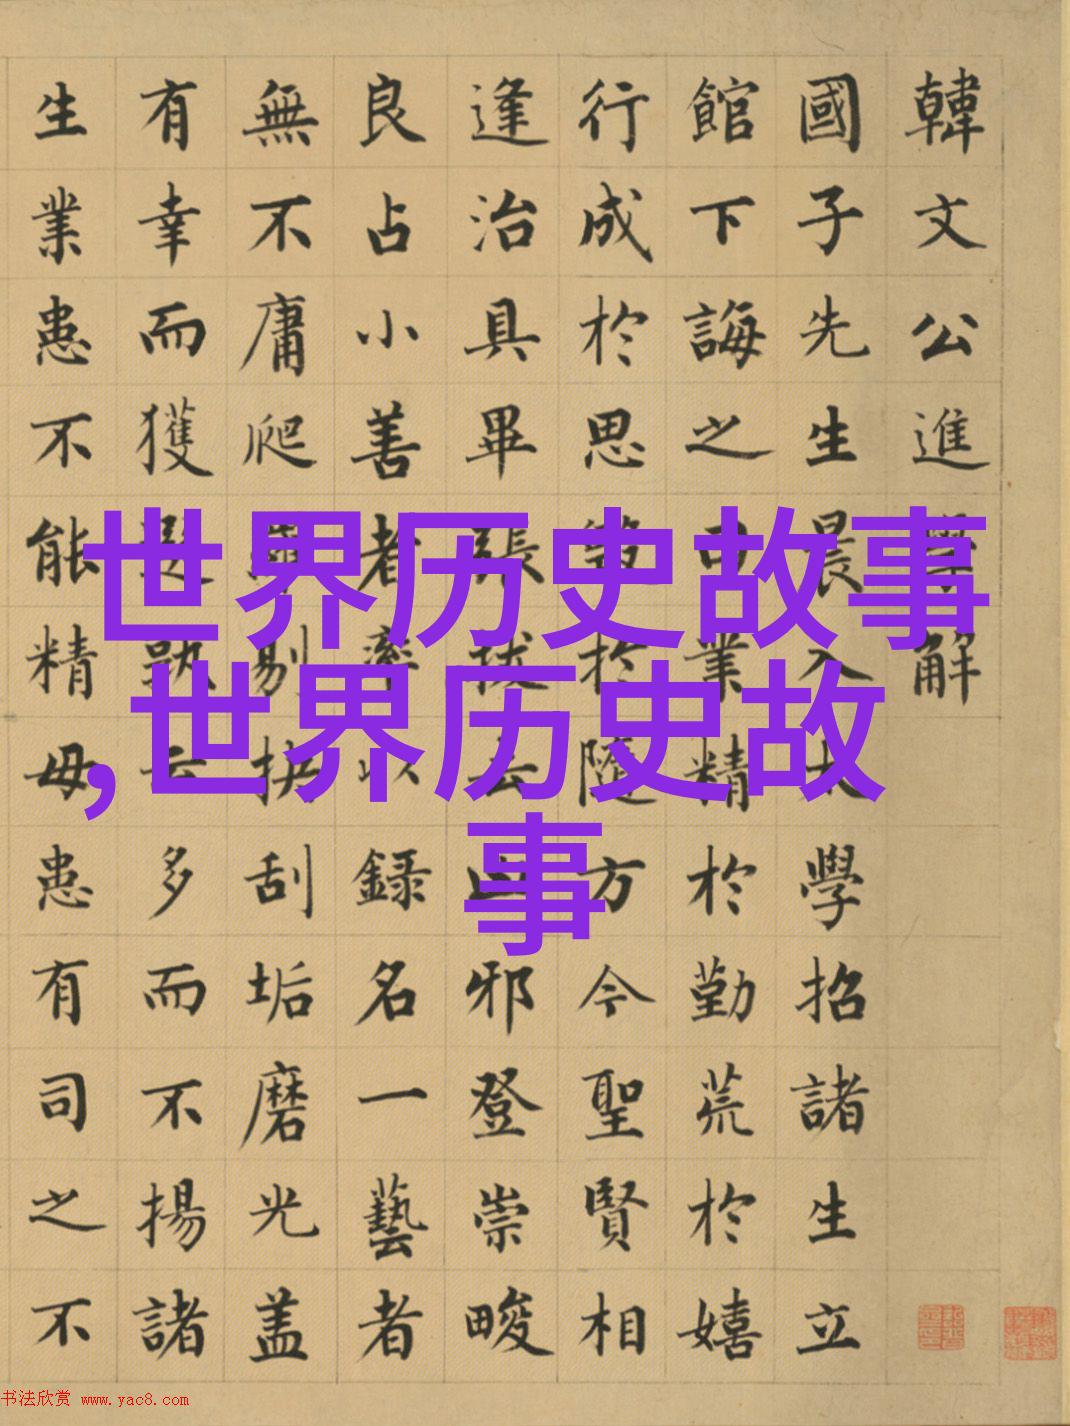 韓文公進學解
國子先生晨入太學招諸生立
館下誨之曰業精於勤荒於嬉
行成於思毀於隨方今聖賢相
逢治具畢張拔去凶邪登崇畯
良占小善者率以録名一藝者
無不庸爬羅剔抉刮垢磨光盖
有幸而獲選孰云多而不揚諸
生業患不能精母患有司之不
世界历史故事
,世界历史故
事
书法欣赏 www.yac8.com